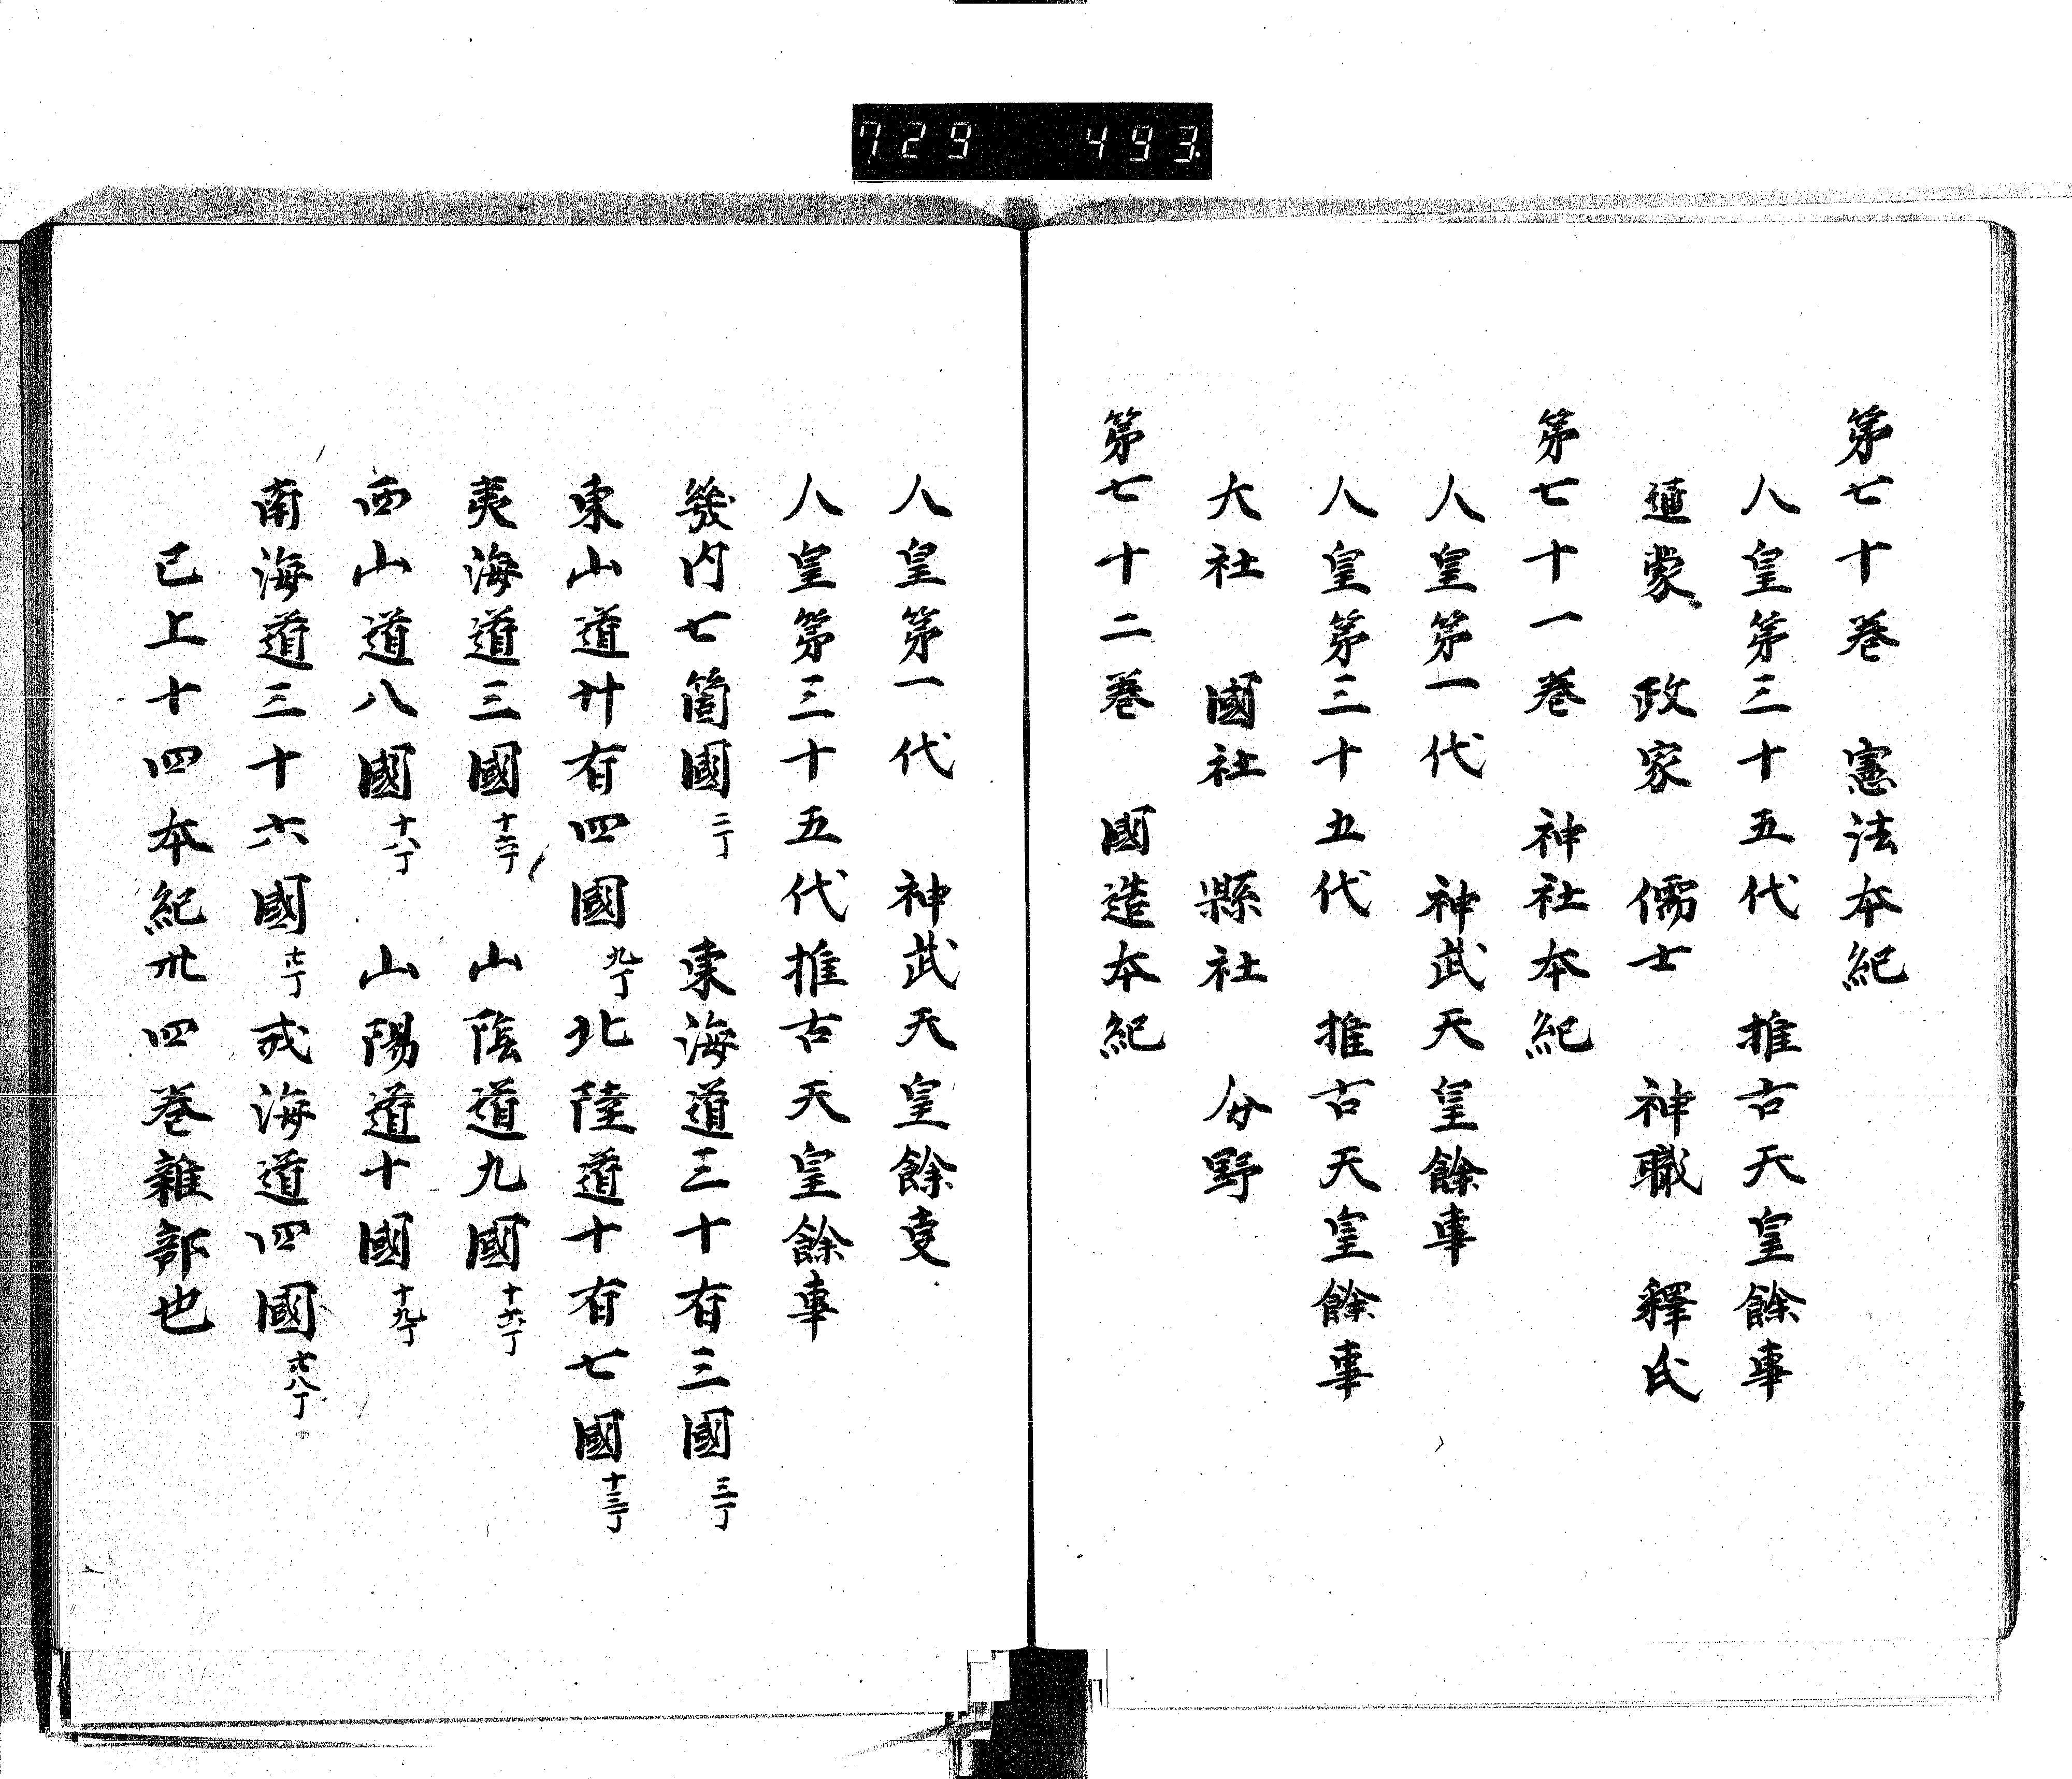 729 493.
第七十巻 憲法本紀
人皇第三十五代 推古天皇餘事
通蒙 政家 儒士 神職 釋氏
第七十一巻 神社本紀
人皇第一代 神武天皇餘事
人皇第三十五代 推古天皇餘事
大社 國社 縣社 分野
第七十二巻 國造本紀
人皇第一代 神武天皇餘叓
人皇第三十五代推古天皇餘事
畿内七箇國 二丁 東海道三十有三國 三丁
東山道廾有四國 九丁 北陸道十有七國 十三丁
夷海道三國 山陰道九國 十六丁
西山道八國 十八丁 山陽道十國 十九丁
南海道三十六國 戎海道四國
已上十四本紀卅四巻雜部也